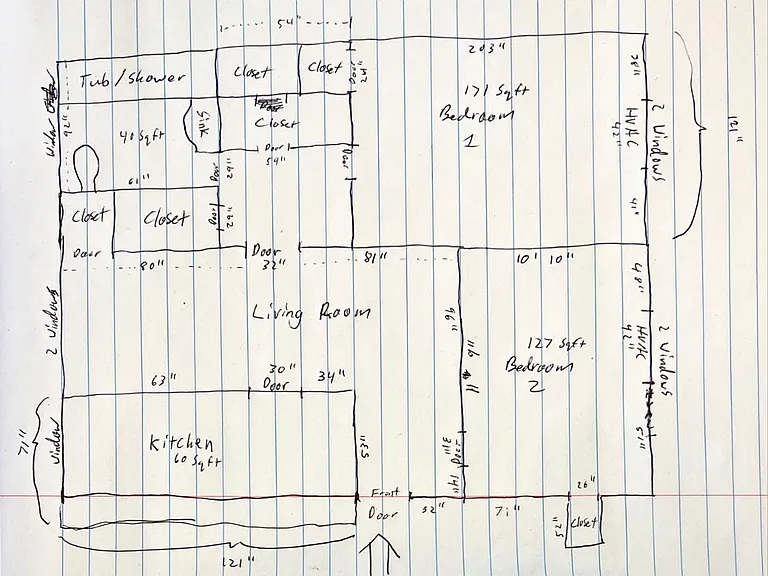 54"
203"
Tub/Shower
Closet
Closet
Door
24"
28"
171 Sqft
Bedroom
1
HVAC
42"
2 Windows
121"
Window
92"
40 Sqft
Sink
Door
Closet
Door
54"
Door
Door
29"
41"
61"
Closet
Closet
Door
29"
Door
Door
80"
32"
81"
10' 10"
48"
Living Room
2 Windows
96"
9'11"
127 Sqft
Bedroom
2
HVAC
42"
2 Windows
63"
30"
Door
34"
71"
Window
Kitchen
60 Sqft
53"
31"
Door
14"
51"
Front
Door
32"
71"
26"
52"
Closet
121"